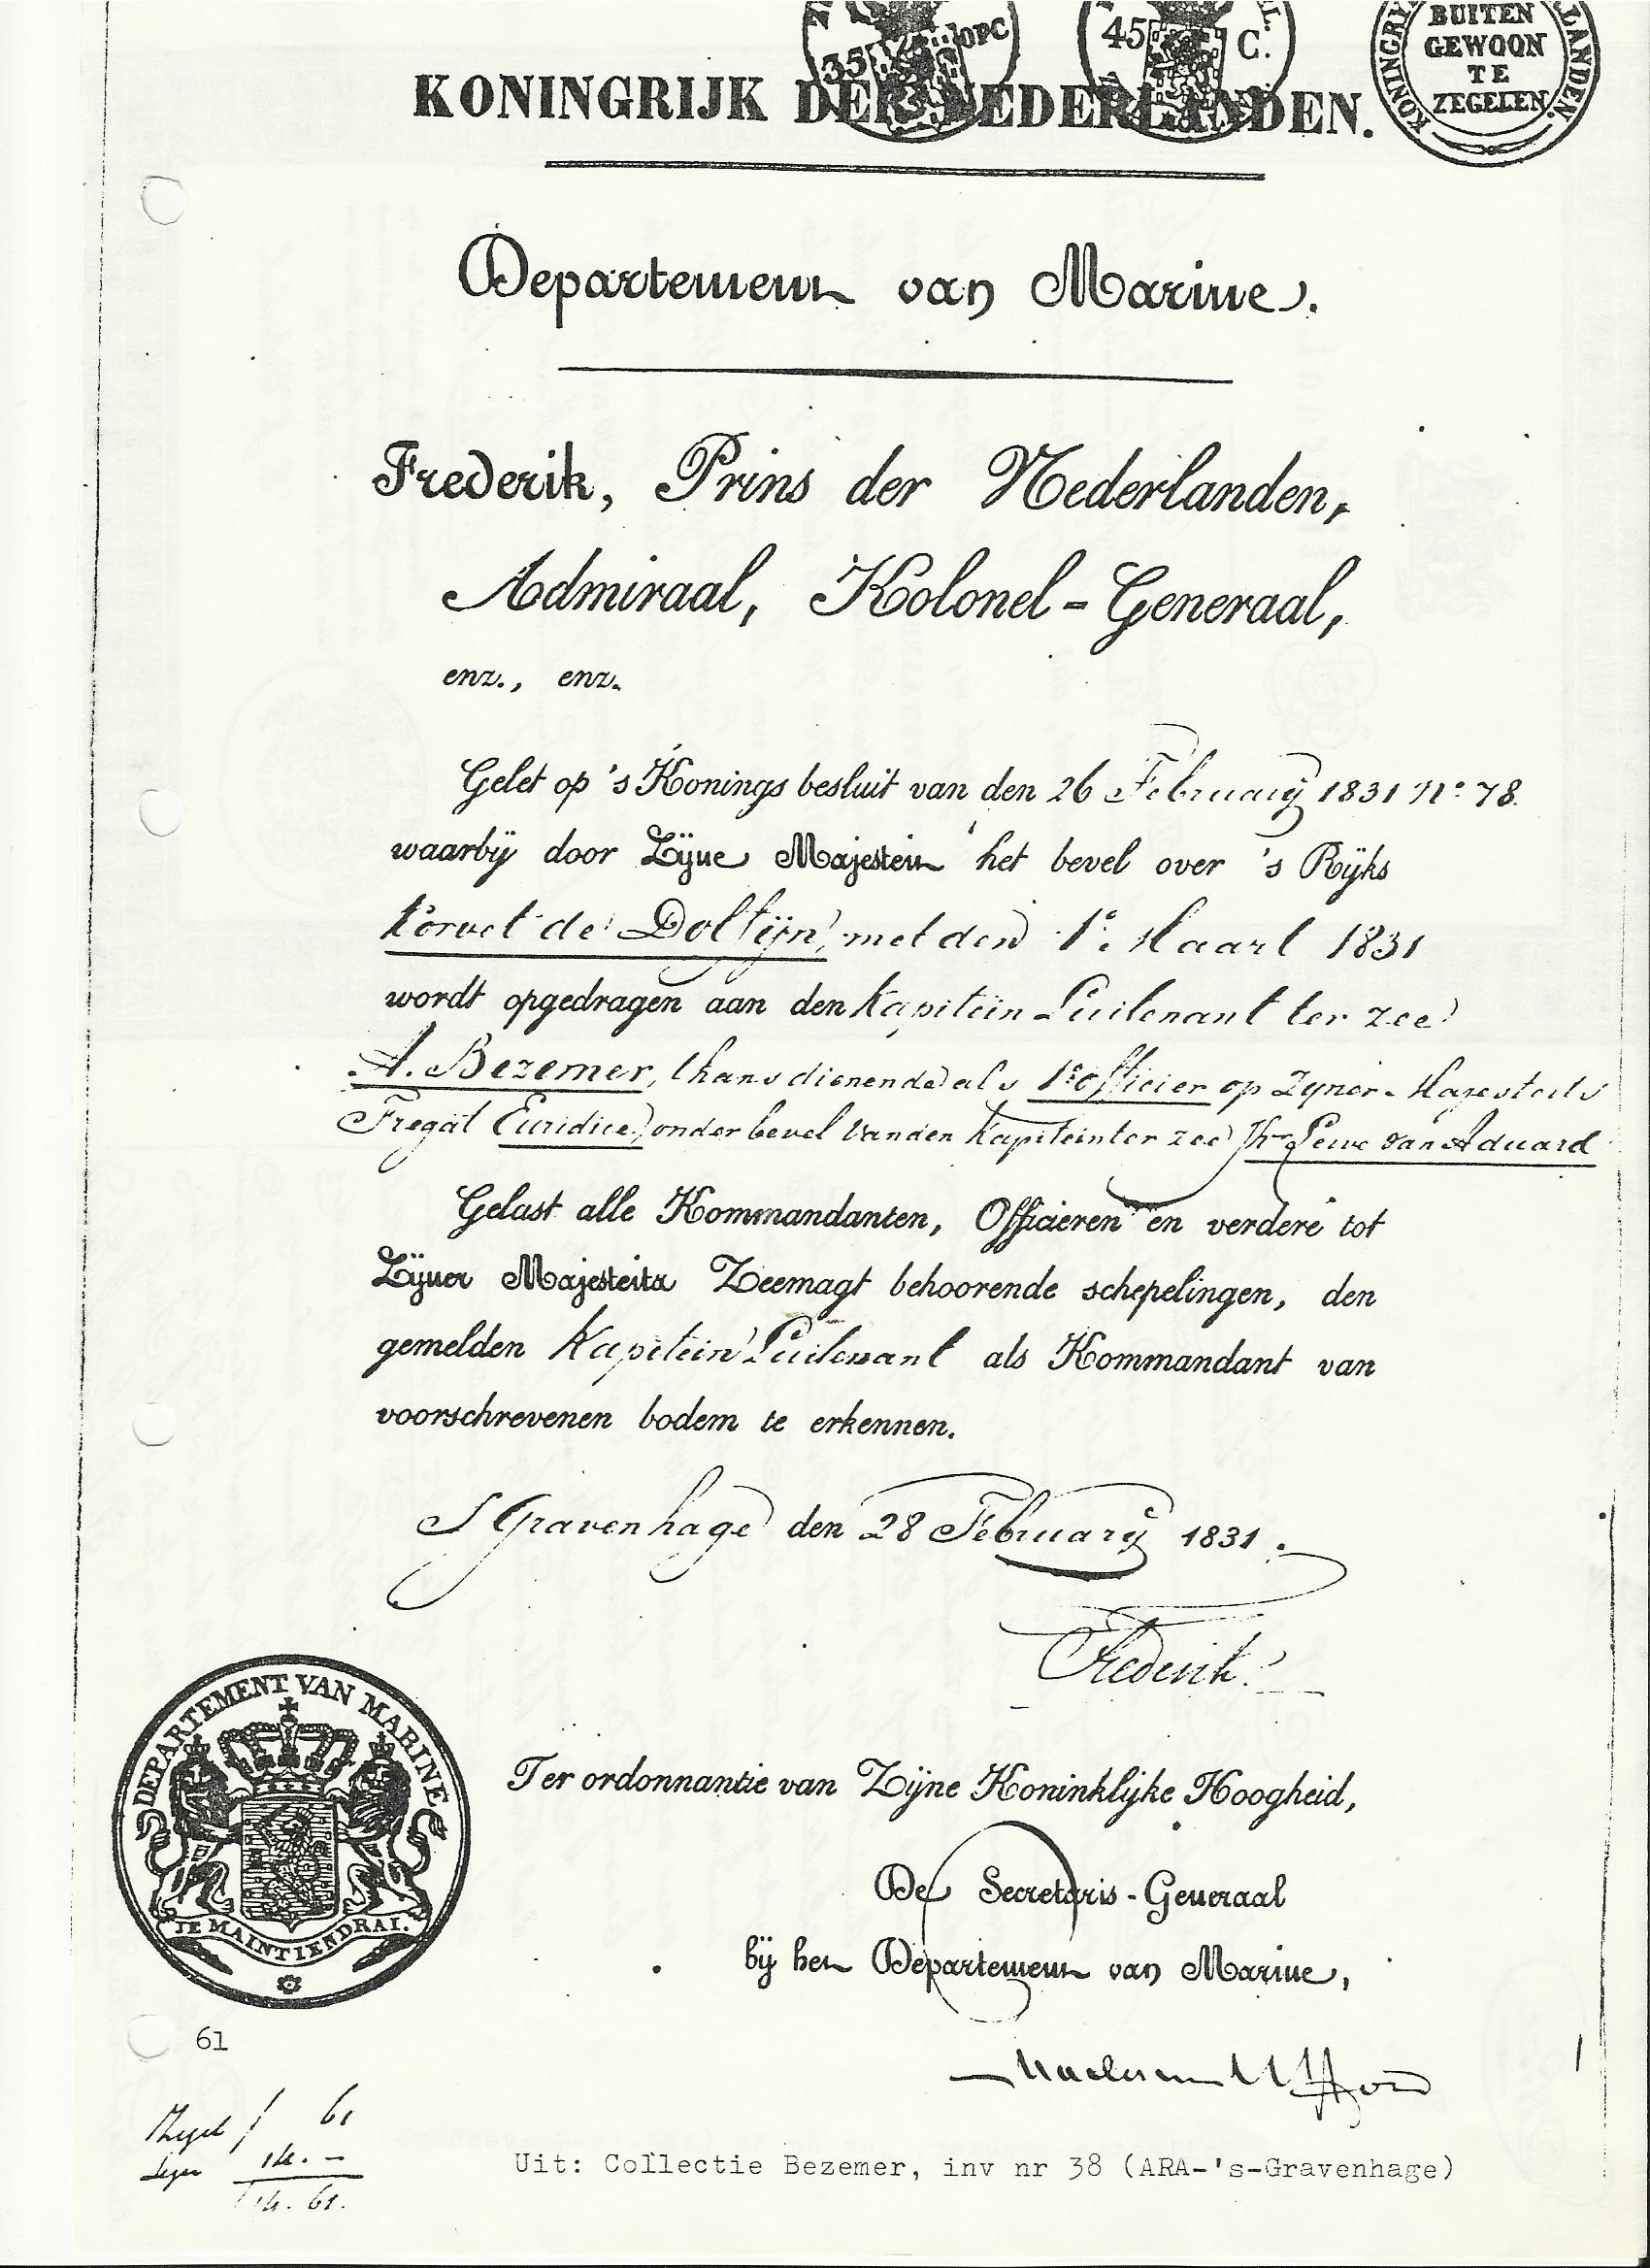 35 OPC
45 C.
BUITEN
GEWOON
TE
ZEGELEN
KONINGRIJK DER NEDERLANDEN.
Departement van Marine.
Frederik, Prins der Nederlanden,
Admiraal, Kolonel-Generaal,
enz., enz.
Gelet op 's Konings besluit van den 26 February 1831 No. 78.
waarbij door Zijne Majesteit het bevel over 's Rijks
korvet de Dolfijn, met den 1e. Maart 1831
wordt opgedragen aan den Kapitein Luitenant ter zee
A. Bezemer, thans dienende als 1e officier op Zyner Majesteits
Fregat Euridice, onder bevel van den Kapitein ter zee Jhr Leuve van Aduard
Gelast alle Kommandanten, Officieren en verdere tot
Zijner Majesteits Zeemagt behoorende schepelingen, den
gemelden Kapitein Luitenant als Kommandant van
voorschrevenen bodem te erkennen.
S Gravenhage den 28 February 1831.
Frederik.
DEPARTEMENT VAN MARINE
JE MAINTIENDRAI.
Ter ordonnantie van Zijne Koninklijke Hoogheid,
De Secretaris-Generaal
bij het Departement van Marine,
61
Zegel f 61
Leges 14.-
f 14.61.
Uit: Collectie Bezemer, inv nr 38 (ARA-'s-Gravenhage)